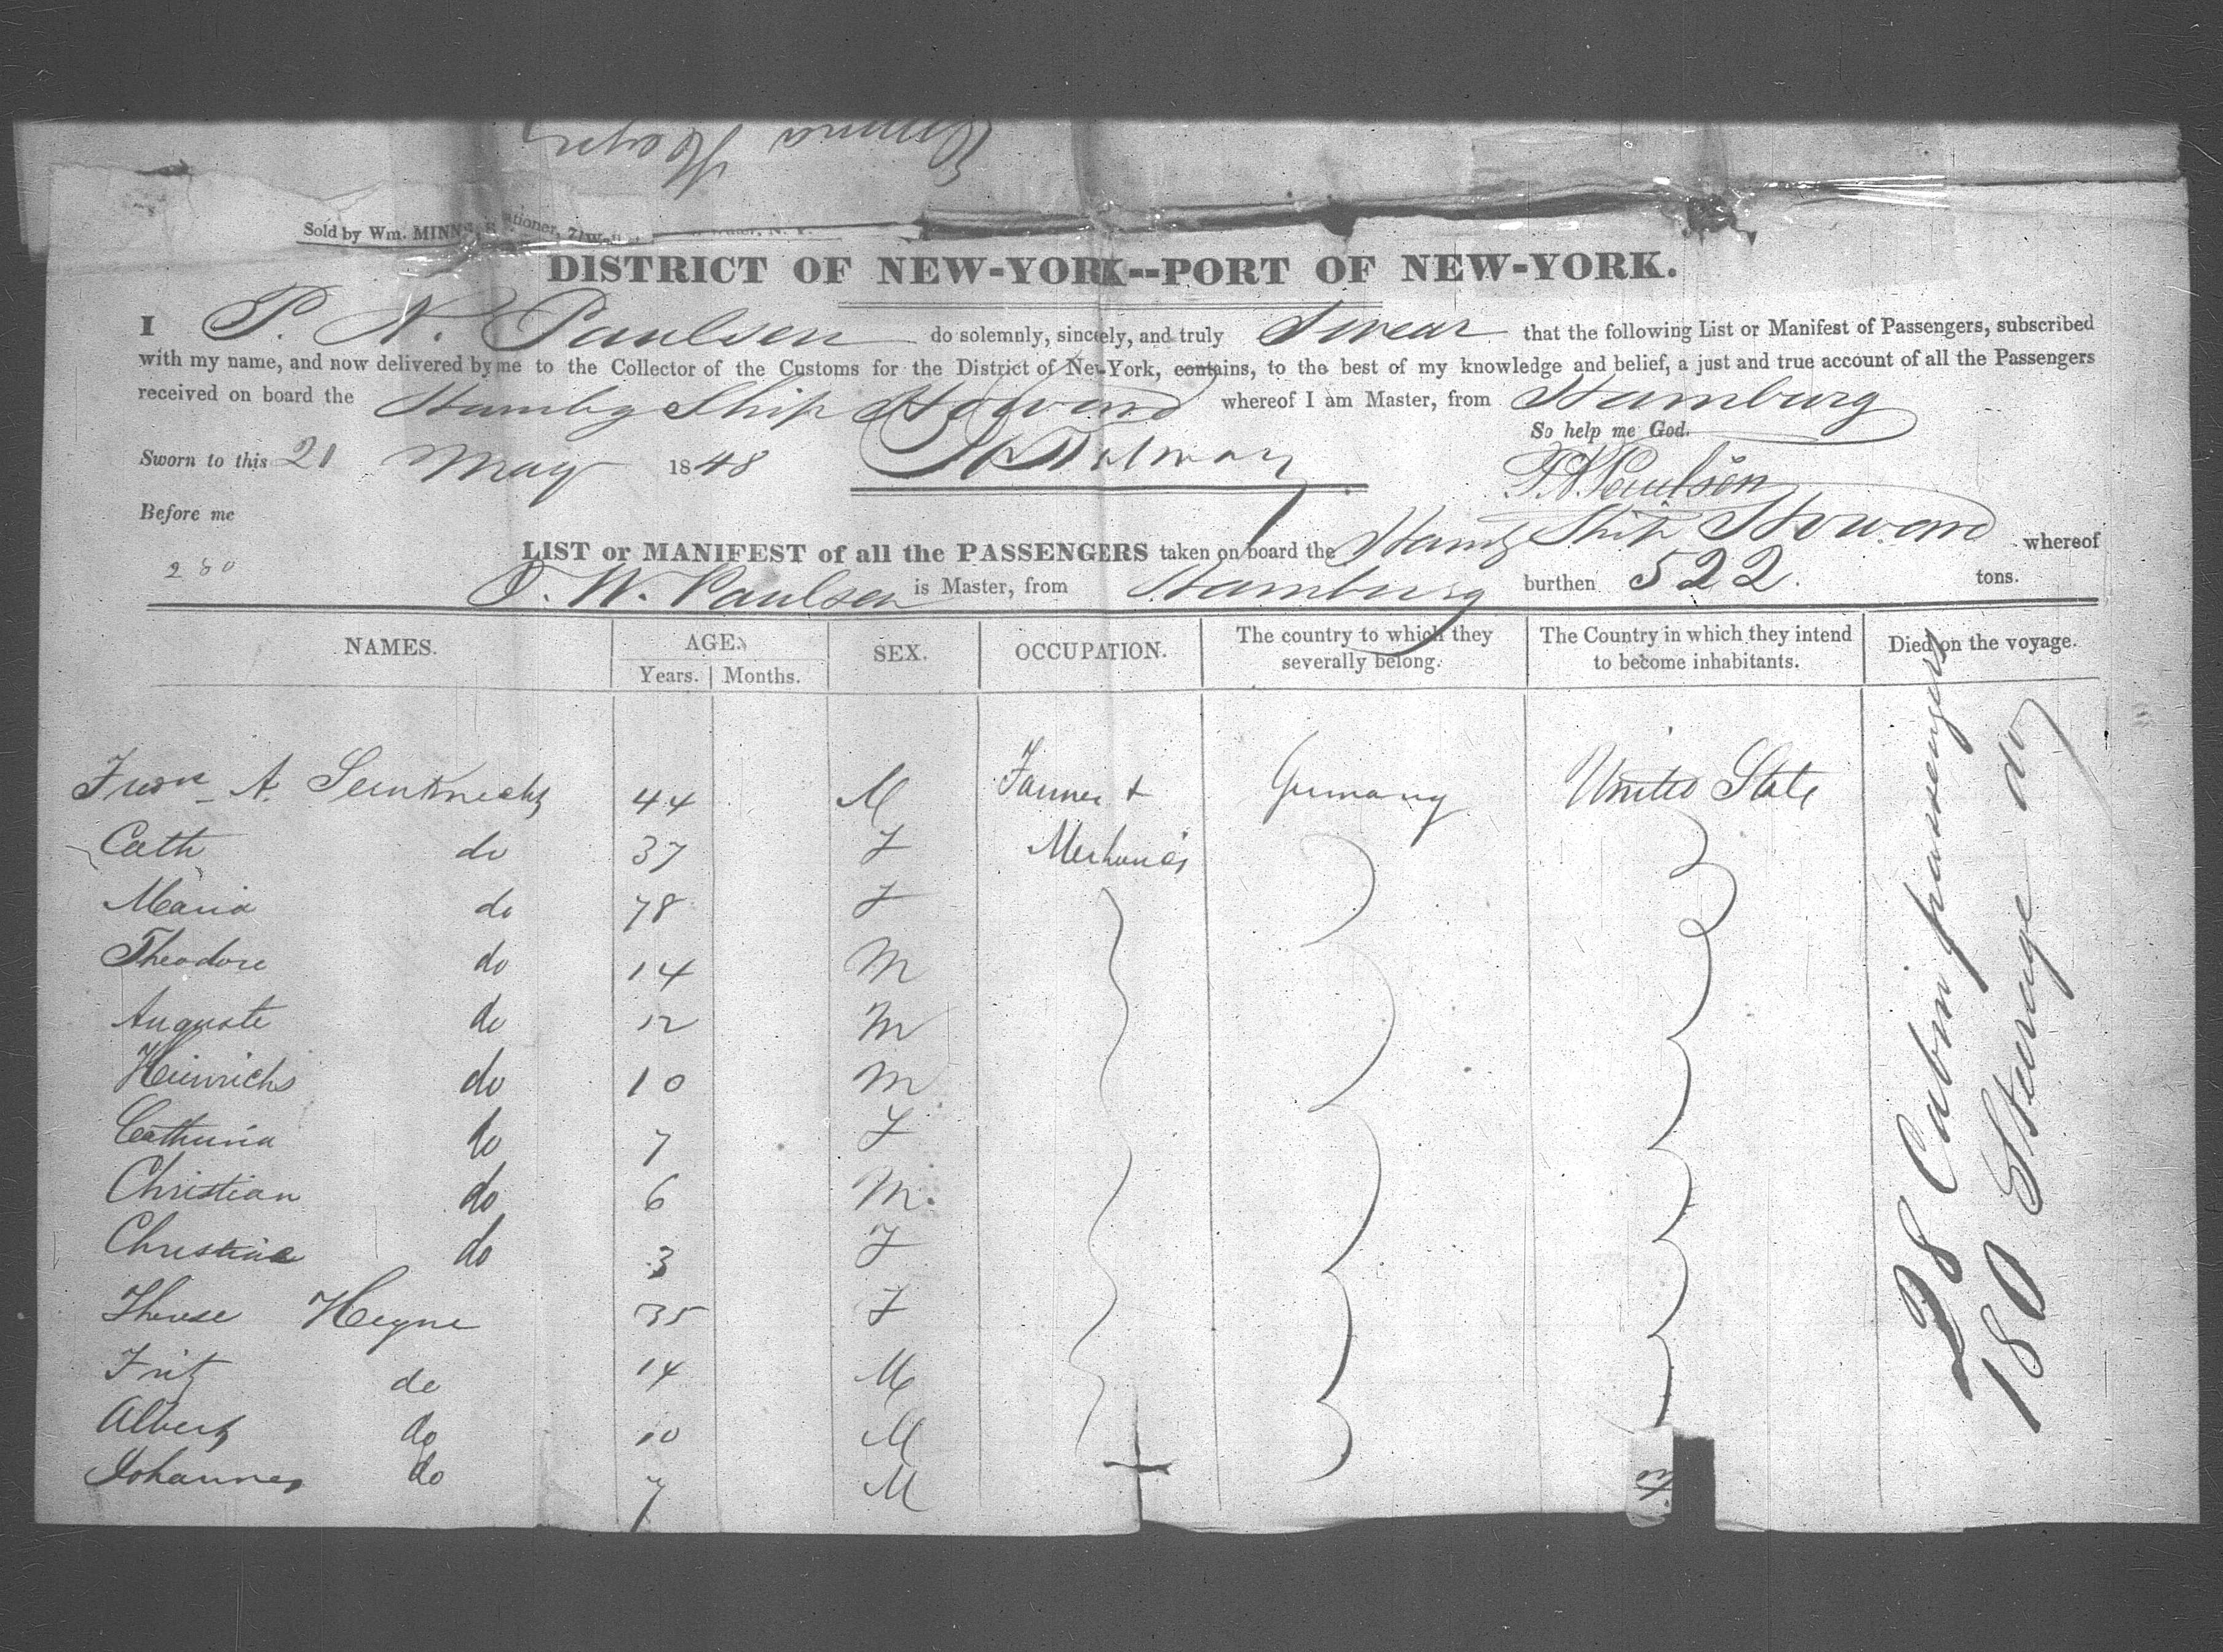 Sold by Wm. MINNS,
DISTRICT OF NEW-YORK--PORT OF NEW-YORK.
I P. N. Paulsen do solemnly, sincerely, and truly Swear that the following List or Manifest of Passengers, subscribed
with my name, and now delivered by me to the Collector of the Customs for the District of New-York, contains, to the best of my knowledge and belief, a just and true account of all the Passengers
received on board the Hambg Ship Howard whereof I am Master, from Hamburg
So help me God.
Sworn to this 21 May 1848 P. N. Paulsen
Before me
280
LIST or MANIFEST of all the PASSENGERS taken on board the Hambg Ship Howard whereof
P. W. Paulsen is Master, from Hamburg burthen 522 tons.
NAMES. AGE. SEX. OCCUPATION. The country to which they severally belong. The Country in which they intend to become inhabitants. Died on the voyage.
Years. Months.
A. 44 M Farmer + Germany United State
Cath do 37 F Mechanics
Maria do 78 F
Theodore do 14 M
Auguste do 12 M
Heinrichs do 10 M
Catharina do 7 F
Christian do 6 M.
Christine do 3 F
Therese Heyne 35 F
Fritz do 14 M
Albert do 10 M
Johannes do 7 M
28 Cabin passengers
180 Steerage do